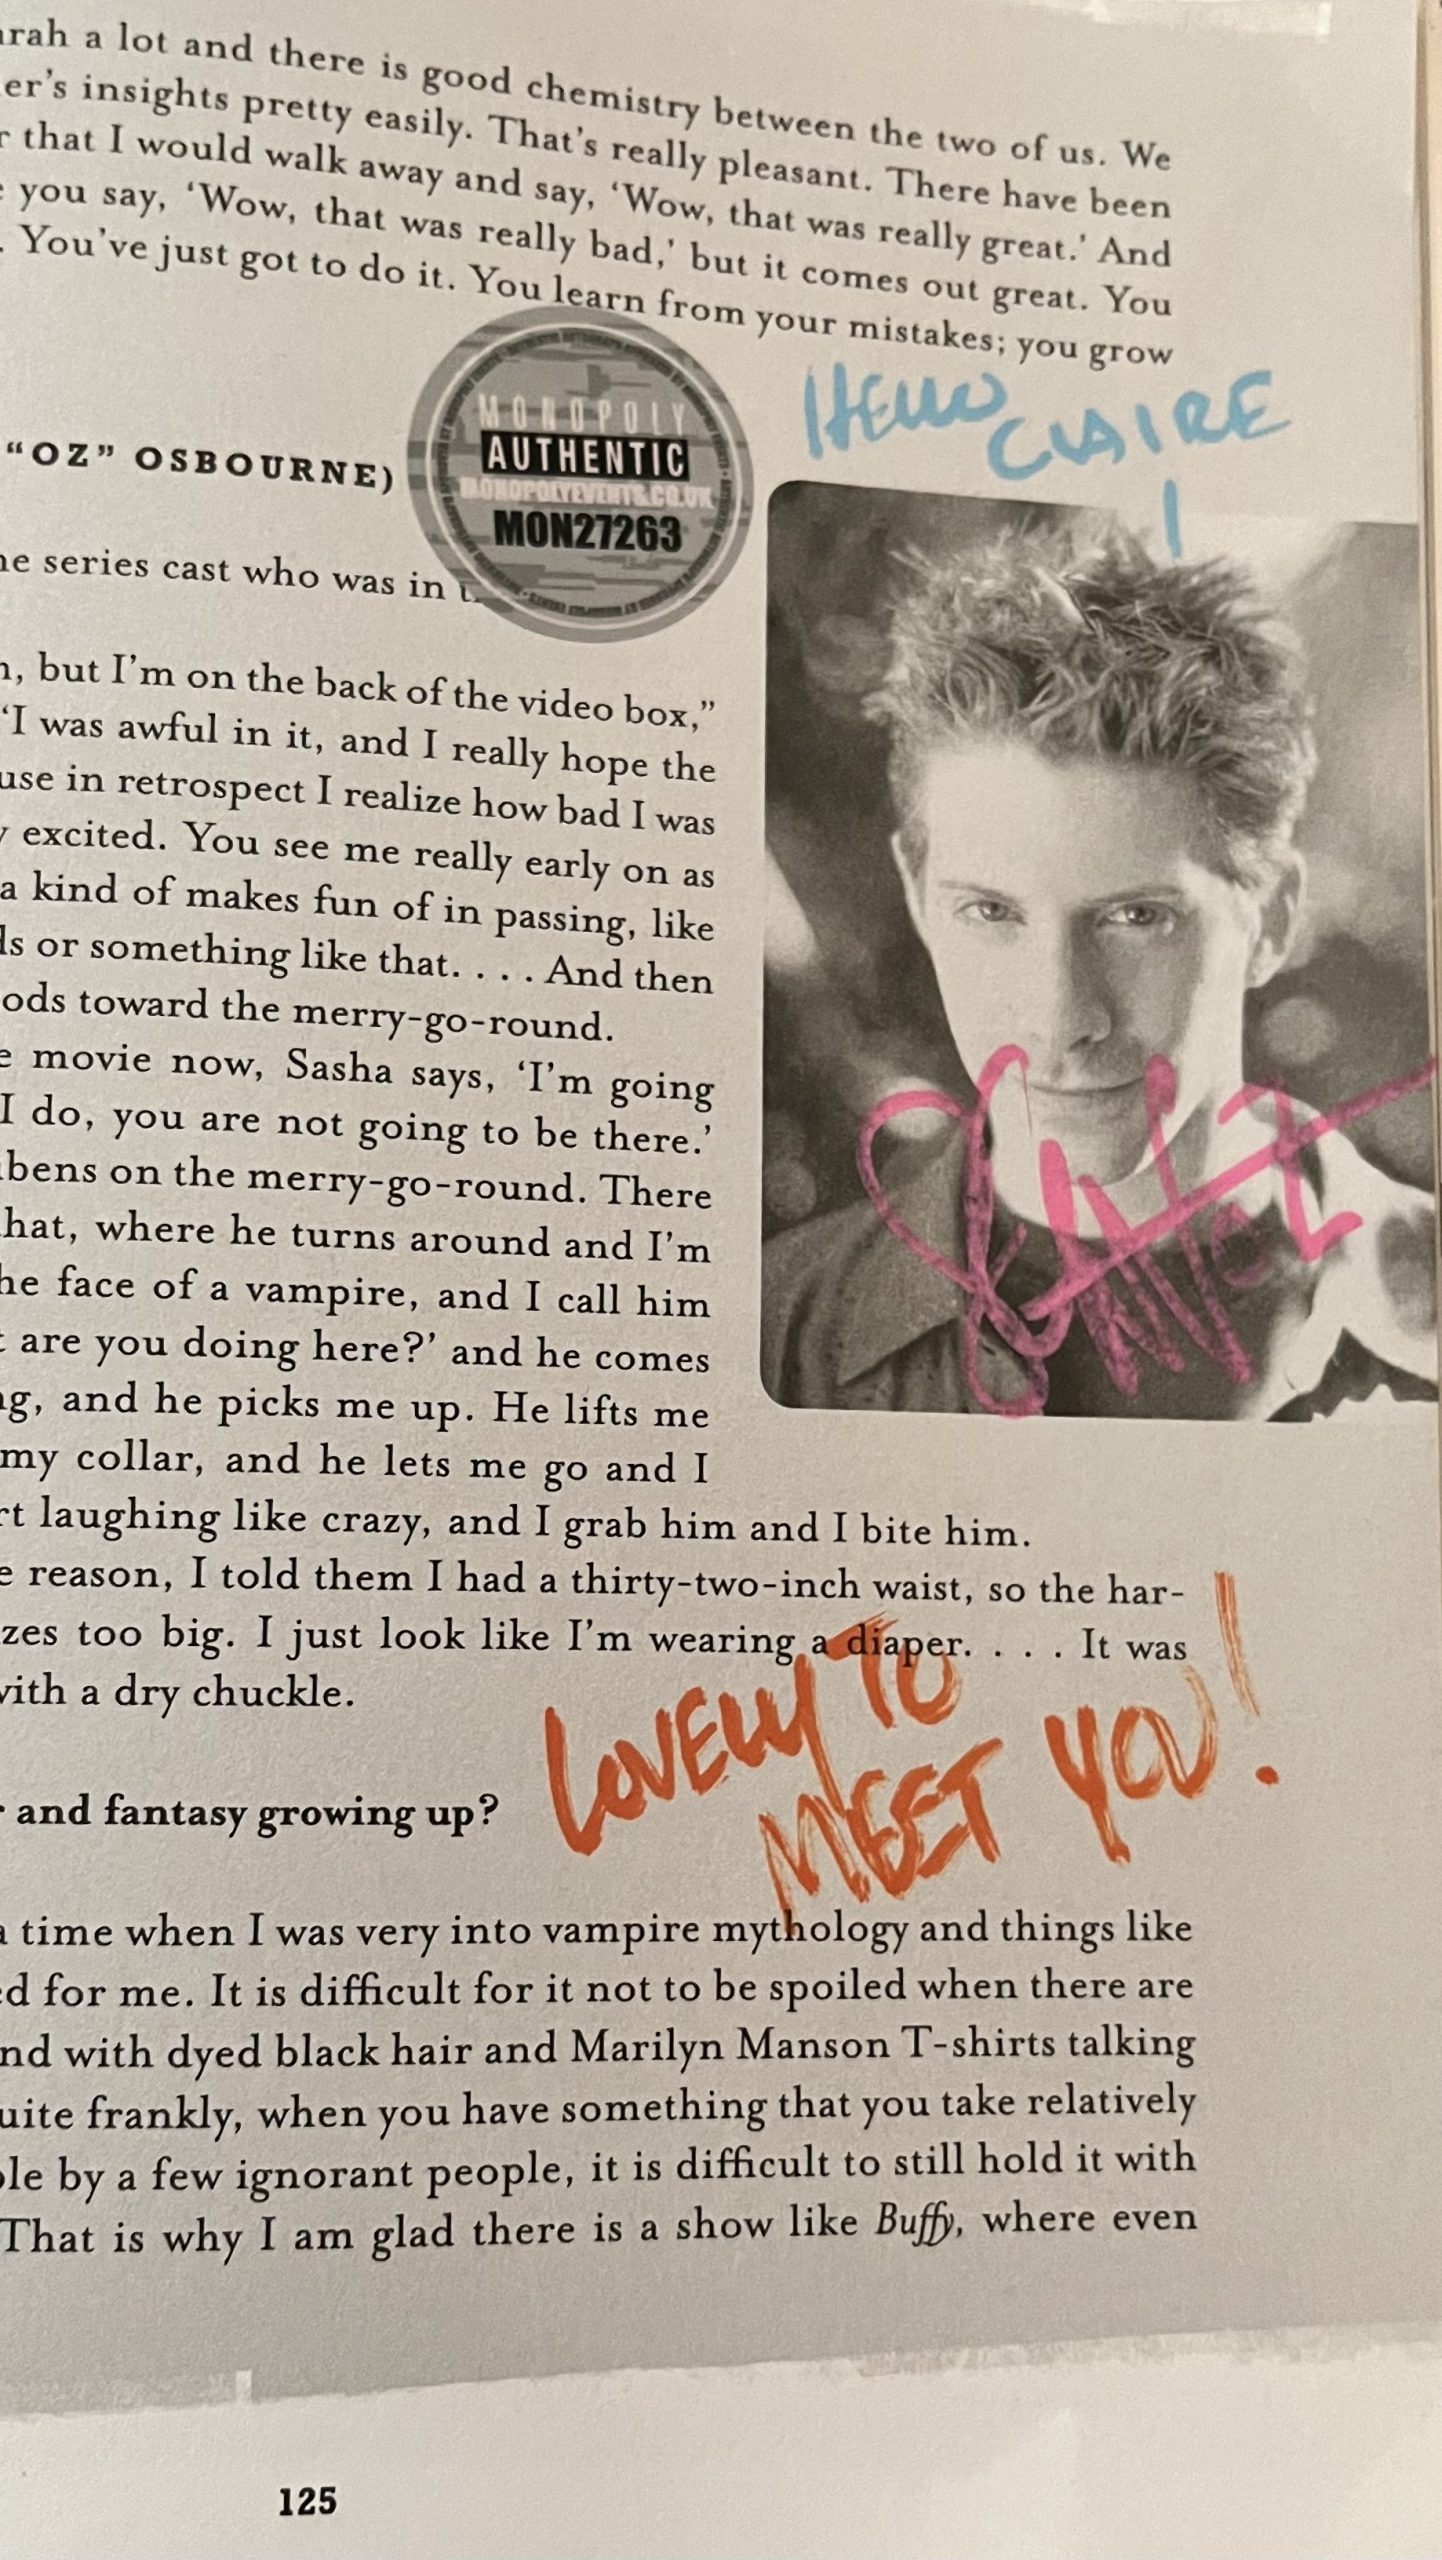 a lot and there is good chemistry between the two of us. We
insights pretty easily. That's really pleasant. There have been
that I would walk away and say, 'Wow, that was really great.' And
you say, 'Wow, that was really bad,' but it comes out great. You
. You've just got to do it. You learn from your mistakes; you grow
HELLO CLAIRE !
MONOPOLY
AUTHENTIC
MONOPOLYEVENTS.CO.UK
MON27263
"OZ" OSBOURNE)
series cast who was in
, but I'm on the back of the video box,"
'I was awful in it, and I really hope the
in retrospect I realize how bad I was
excited. You see me really early on as
a kind of makes fun of in passing, like
or something like that. . . . And then
toward the merry-go-round.
movie now, Sasha says, 'I'm going
I do, you are not going to be there.'
on the merry-go-round. There
that, where he turns around and I'm
face of a vampire, and I call him
are you doing here?' and he comes
, and he picks me up. He lifts me
my collar, and he lets me go and I
laughing like crazy, and I grab him and I bite him.
reason, I told them I had a thirty-two-inch waist, so the har-
too big. I just look like I'm wearing a diaper. . . . It was
with a dry chuckle.
LOVELY TO
MEET YOU!
and fantasy growing up?
time when I was very into vampire mythology and things like
for me. It is difficult for it not to be spoiled when there are
with dyed black hair and Marilyn Manson T-shirts talking
frankly, when you have something that you take relatively
by a few ignorant people, it is difficult to still hold it with
That is why I am glad there is a show like Buffy, where even
125